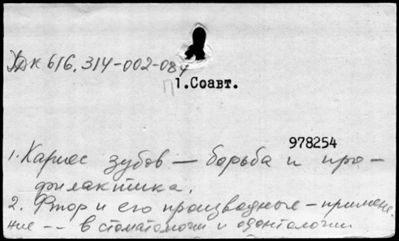 УДК 616.314-002-084
1.Соавт.
978254
1. Кариес зубов — борьба и про-
филактика.
2. Фтор и его производные - примене-
ние -- в стоматологии и одонтологии